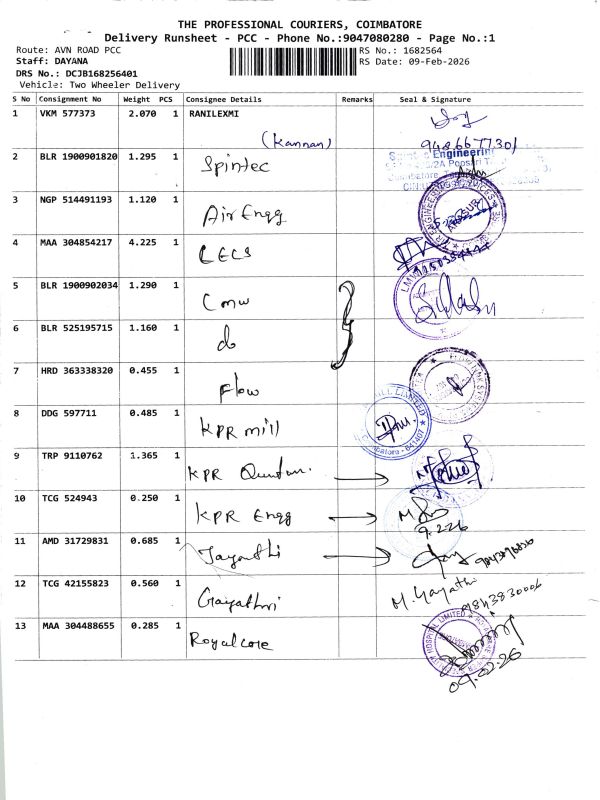 THE PROFESSIONAL COURIERS, COIMBATORE
Delivery Runsheet - PCC - Phone No.:9047080280 - Page No.:1
Route: AVN ROAD PCC
RS No.: 1682564
Staff: DAYANA
RS Date: 09-Feb-2026
DRS No.: DCJB168256401
Vehicle: Two Wheeler Delivery
S No Consignment No Weight PCS Consignee Details Remarks Seal & Signature
1 VKM 577373 2.070 1 RANILEXMI
(Kannan) 9486677301
2 BLR 1900901820 1.295 1 Spintec
Engineering
3 NGP 514491193 1.120 1 Air Engg
4 MAA 304854217 4.225 1 LECS
5 BLR 1900902034 1.290 1 Cmw
6 BLR 525195715 1.160 1 do
7 HRD 363338320 0.455 1 Flow
8 DDG 597711 0.485 1 KPR mill
Coimbatore - 641407
9 TRP 9110762 1.365 1 KPR
10 TCG 524943 0.250 1 KPR Engg
9.2.26
11 AMD 31729831 0.685 1 Jayanthi
12 TCG 42155823 0.560 1 Gayathri M Gayathri
9843830006
13 MAA 304488655 0.285 1 Royalcore
HOSPITAL LIMITED
09.02.26